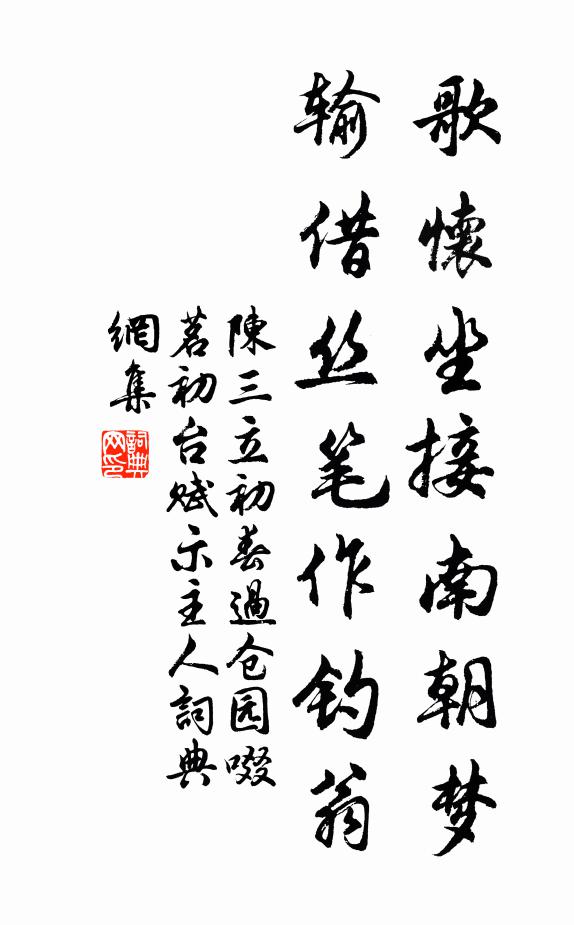 歌懷坐接南朝梦
输借丝笔作钓翁
陳三立初春過仓园啜
茗初台赋示主人詞典
網集
詞典
网印